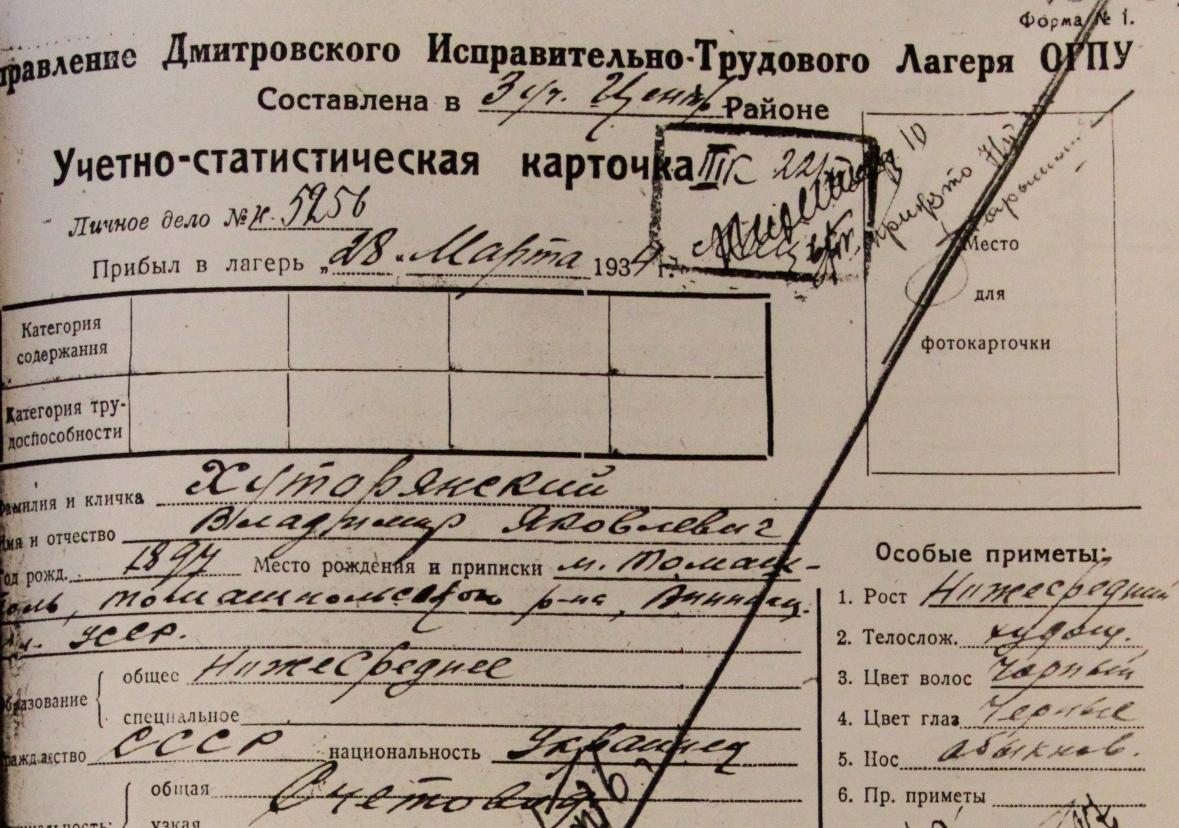 Форма № 1.
правление Дмитровского Исправительно-Трудового Лагеря ОГПУ
Составлена в 3 уч. Центр Районе
Учетно-статистическая карточка
IIIК 22/
Личное дело № 5256
Прибыл в лагерь „28 „ Марта 1934 г.
Место
для
фотокарточки
Категория
содержания
Категория тру-
доспособности
Фамилия и кличка Хуторянский
Имя и отчество Владимир Яковлевич
од рожд. 1897 Место рождения и приписки м. Томаш-
поль, Томашпольского р-на, Винницк.
УССР.
бразование
общее Нижесреднее
специальное
ажданство СССР национальность Украинец
общая Счетовод
узкая
Особые приметы:
1. Рост Нижесредний
2. Телослож. худощ.
3. Цвет волос Чорный
4. Цвет глаз Черные
5. Нос обыкнов.
6. Пр. приметы